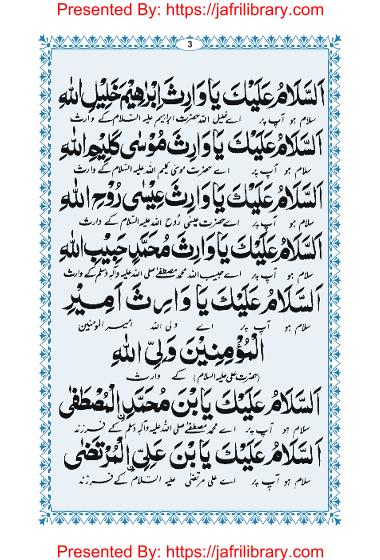 Presented By: https://jafrilibrary.com/
3
اَلسَّلَامُ عَلَيْكَ يَا وَارِثَ اِبْرٰهِيْمَ خَلِيْلِ اللهِ
سلام ہو آپ پر اے خلیل اللہ حضرت ابراہیم علیہ السلام کے وارث
اَلسَّلَامُ عَلَيْكَ يَا وَارِثَ مُوْسٰى كَلِيْمِ اللهِ
سلام ہو آپ پر اے حضرت موسیٰ کلیم اللہ علیہ السلام کے وارث
اَلسَّلَامُ عَلَيْكَ يَا وَارِثَ عِيْسٰى رُوْحِ اللهِ
سلام ہو آپ پر اے حضرت عیسیٰ روح اللہ علیہ السلام کے وارث
اَلسَّلَامُ عَلَيْكَ يَا وَارِثَ مُحَمَّدٍ حَبِيْبِ اللهِ
سلام ہو آپ پر اے حبیب اللہ محمد مصطفےٰ صلی اللہ علیہ وآلہ وسلم کے وارث
اَلسَّلَامُ عَلَيْكَ يَا وَارِثَ اَمِيْرِ
سلام ہو آپ پر اے ولی اللہ امیر المومنین
الْمُؤْمِنِيْنَ وَلِيِّ اللهِ
(حضرت علی علیہ السلام) کے وارث
اَلسَّلَامُ عَلَيْكَ يَابْنَ مُحَمَّدٍ الْمُصْطَفٰى
سلام ہو آپ پر اے محمد مصطفےٰ صلی اللہ علیہ وآلہ وسلم کے فرزند
اَلسَّلَامُ عَلَيْكَ يَابْنَ عَلِىِّ الْمُرْتَضٰى
سلام ہو آپ پر اے علی مرتضیٰ علیہ السلام کے فرزند
Presented By: https://jafrilibrary.com/